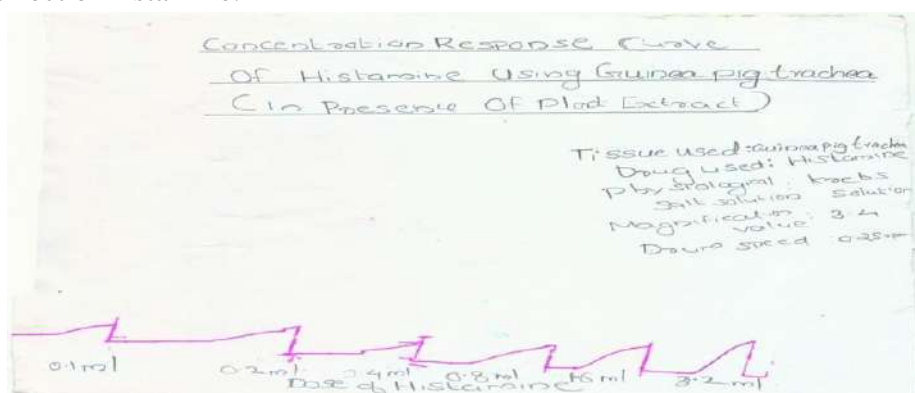 Concentration Response Curve
Of Histamine Using Guinea pig trachea
(In Presence Of Plad Extract)
Tissue used: Guinea pig trachea
Drug used: Histamine
Physiological : Krebs
Salt solution Solution
Magnification : 3.4
value
Drum speed 0.25
0.1 ml 0.2 ml 0.4 ml 0.8 ml 1.6 ml 3.2 ml
Dose of Histamine